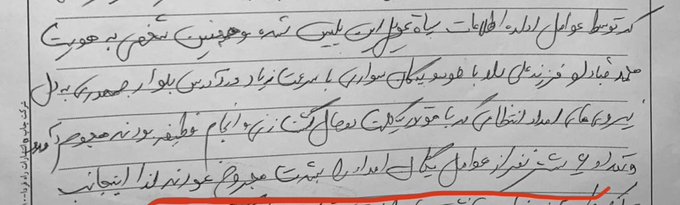 که توسط عوامل اداره اطلاعات سپاه تحویل این پلیس شده و همچنین شخصی به هویت
محمد قبادلو فرزند علی با خودرو پیکان سواری با سرعت زیاد در آدرس بلوار جمهوری به دل
نیروهای امداد انتظامی که با موتورسیکلت در حال گشت زنی و انجام وظیفه بودند هجوم آورده
و تعداد ۶ شش نفر از عوامل یگان امداد را بشدت مجروح نمودند لذا اینجانب